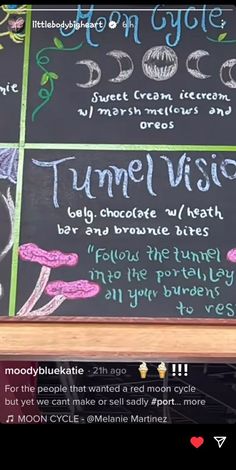 littlebodybigheart 6h
Moon Cycle
Sweet Cream icecream
w/ marsh mellows and
oreos
Tunnel Visio
belg. chocolate w/heath
bar and brownie bites
"Follow the tunnel
into the portal, lay
all your burdens
to res
moodybluekatie · 21h ago 🍦🍦!!!
For the people that wanted a red moon cycle
but yet we cant make or sell sadly #port... more
♫ MOON CYCLE - @Melanie Martinez